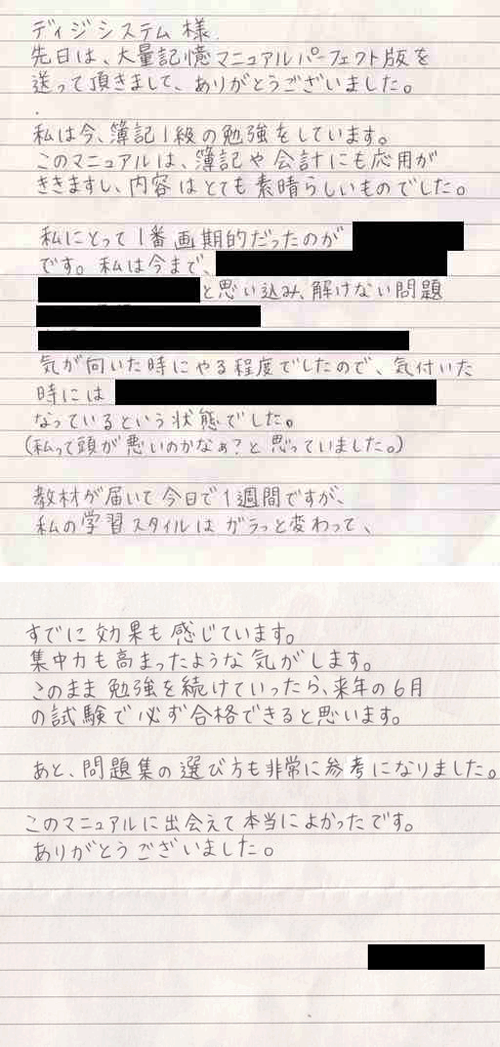 ディジシステム 様
先日は、大量記憶マニュアルパーフェクト版を
送って頂きまして、ありがとうございました。
私は今、簿記1級の勉強をしています。
このマニュアルは、簿記や会計にも応用が
ききますし、内容はとても素晴らしいものでした。
私にとって1番画期的だったのが
です。私は今まで、
と思い込み、解けない問題
気が向いた時にやる程度でしたので、気付いた
時には
なっているという状態でした。
(私って頭が悪いのかなぁ?と思っていました。)
教材が届いて今日で1週間ですが、
私の学習スタイルはガラっと変わって、
すでに効果も感じています。
集中力も高まったような気がします。
このまま勉強を続けていったら、来年の6月
の試験で必ず合格できると思います。
あと、問題集の選び方も非常に参考になりました。
このマニュアルに出会えて本当によかったです。
ありがとうございました。